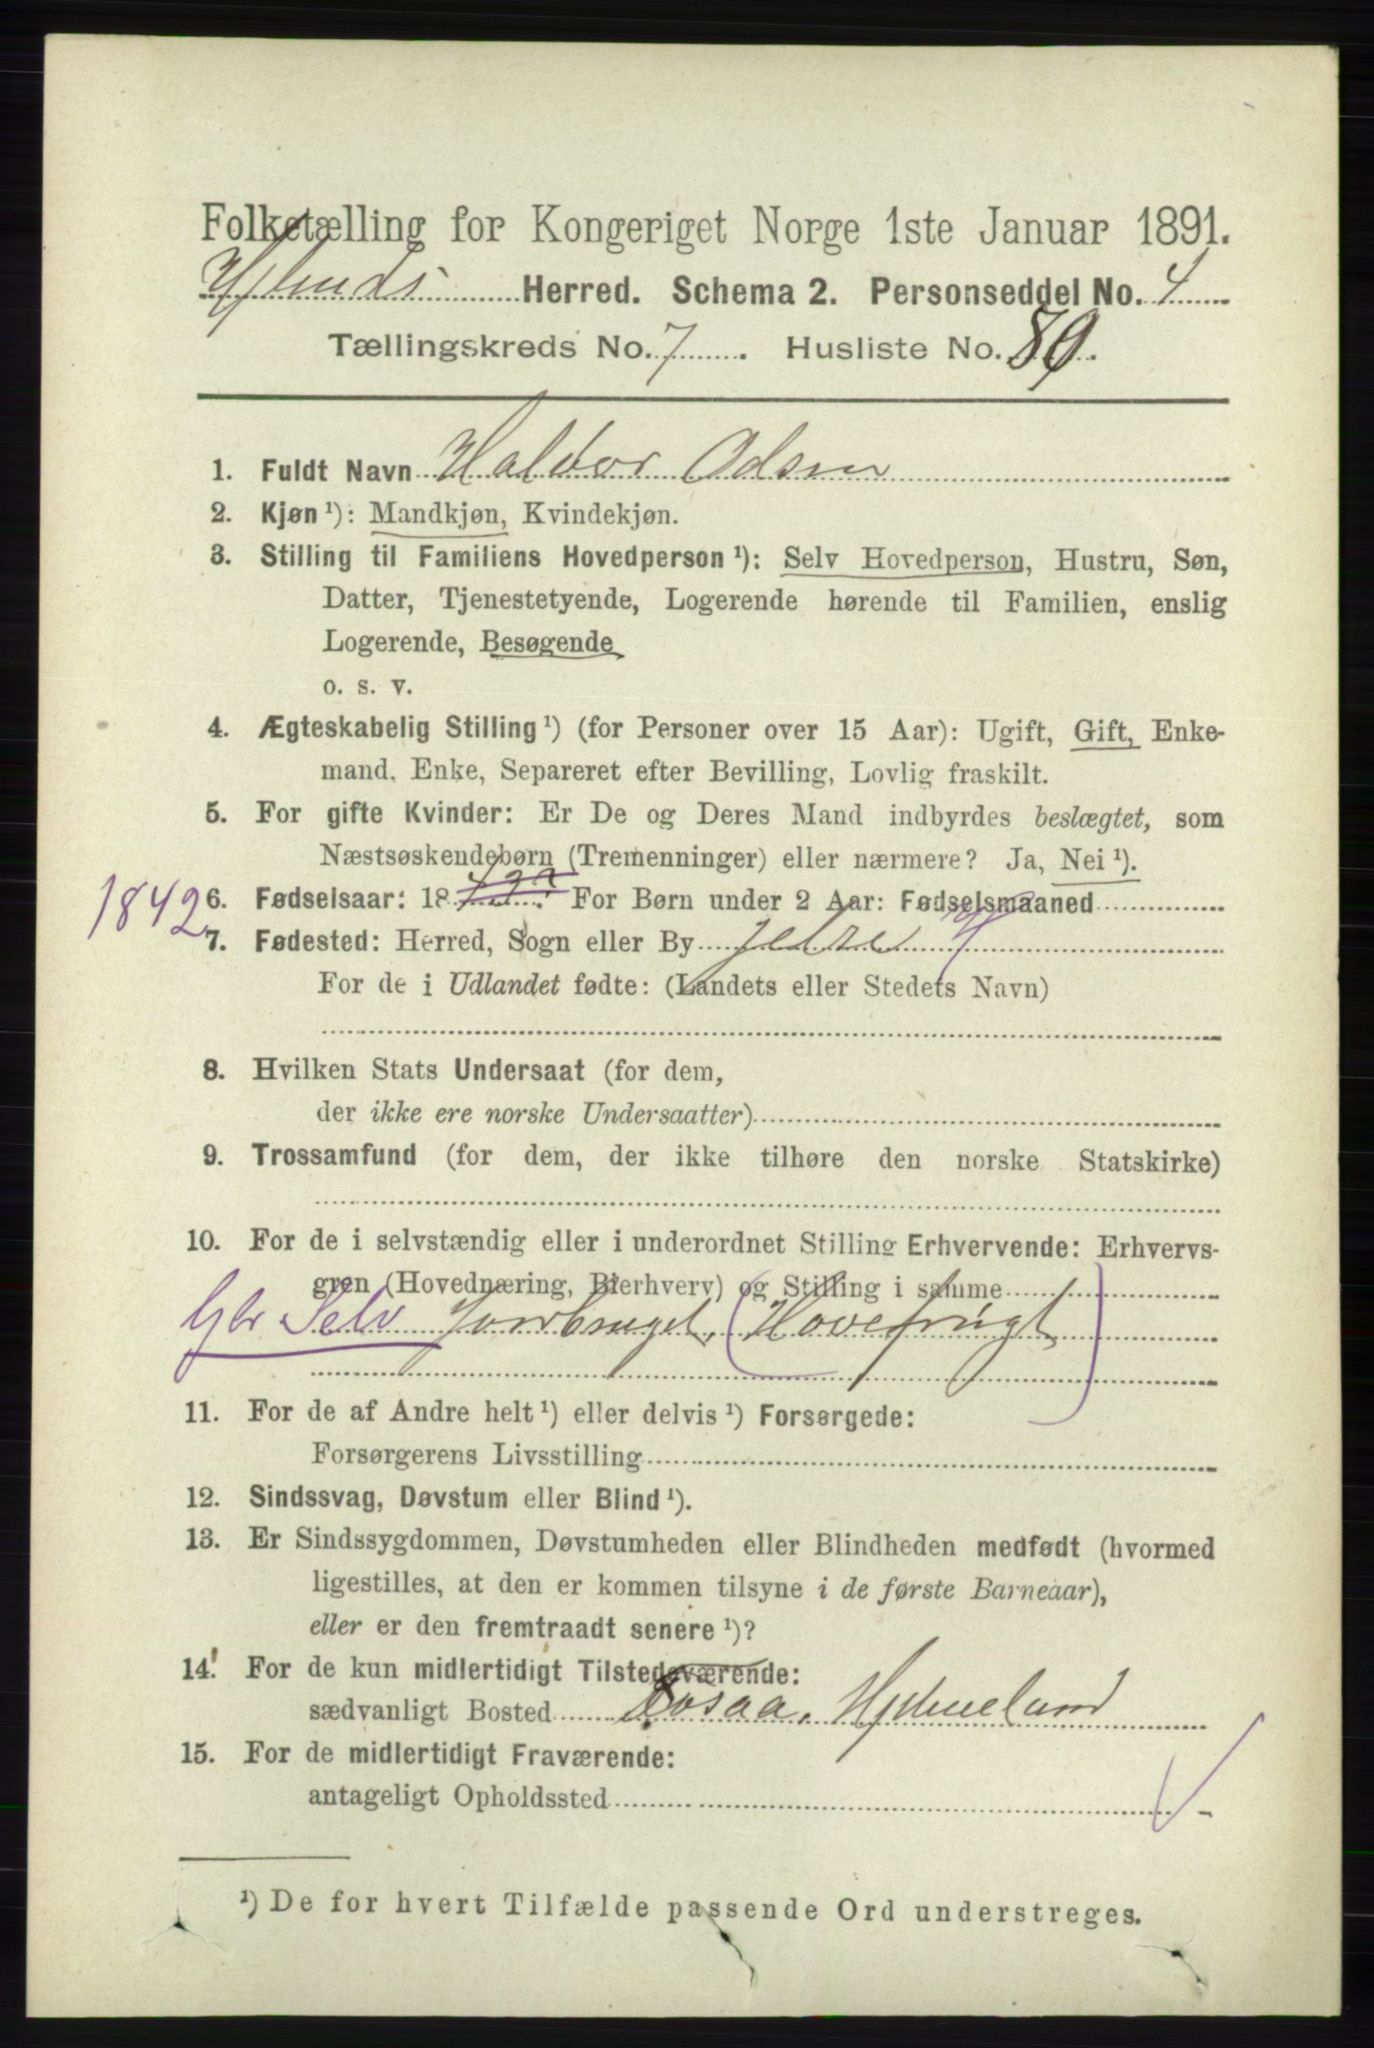 Folketælling for Kongeriget Norge 1ste Januar 1891.
Herred. Schema 2. Personseddel No. 4
Tællingskreds No. 7. Husliste No. 89.
1. Fuldt Navn Halvor Odsen
2. Kjøn ¹): Mandkjøn, Kvindekjøn.
3. Stilling til Familiens Hovedperson ¹): Selv Hovedperson, Hustru, Søn,
Datter, Tjenestetyende, Logerende hørende til Familien, enslig
Logerende, Besøgende
o. s. v.
4. Ægteskabelig Stilling ¹) (for Personer over 15 Aar): Ugift, Gift, Enke-
mand, Enke, Separeret efter Bevilling, Lovlig fraskilt.
5. For gifte Kvinder: Er De og Deres Mand indbyrdes beslægtet, som
Næstsøskendebørn (Tremenninger) eller nærmere? Ja, Nei ¹).
1842 6. Fødselsaar: 18 For Børn under 2 Aar: Fødselsmaaned
7. Fødested: Herred, Sogn eller By
For de i Udlandet fødte: (Landets eller Stedets Navn)
8. Hvilken Stats Undersaat (for dem,
der ikke ere norske Undersaatter)
9. Trossamfund (for dem, der ikke tilhøre den norske Statskirke)
10. For de i selvstændig eller i underordnet Stilling Erhvervende: Erhvervs-
gren (Hovednæring, Bierhverv) og Stilling i samme
Gbr Selv Jordbruget, (Hovefrugt)
11. For de af Andre helt ¹) eller delvis ¹) Forsørgede:
Forsørgerens Livsstilling
12. Sindssvag, Døvstum eller Blind ¹).
13. Er Sindssygdommen, Døvstumheden eller Blindheden medfødt (hvormed
ligestilles, at den er kommen tilsyne i de første Barneaar),
eller er den fremtraadt senere ¹)?
14. For de kun midlertidigt Tilstedeværende:
sædvanligt Bosted
15. For de midlertidigt Fraværende:
antageligt Opholdssted
¹) De for hvert Tilfælde passende Ord understreges.